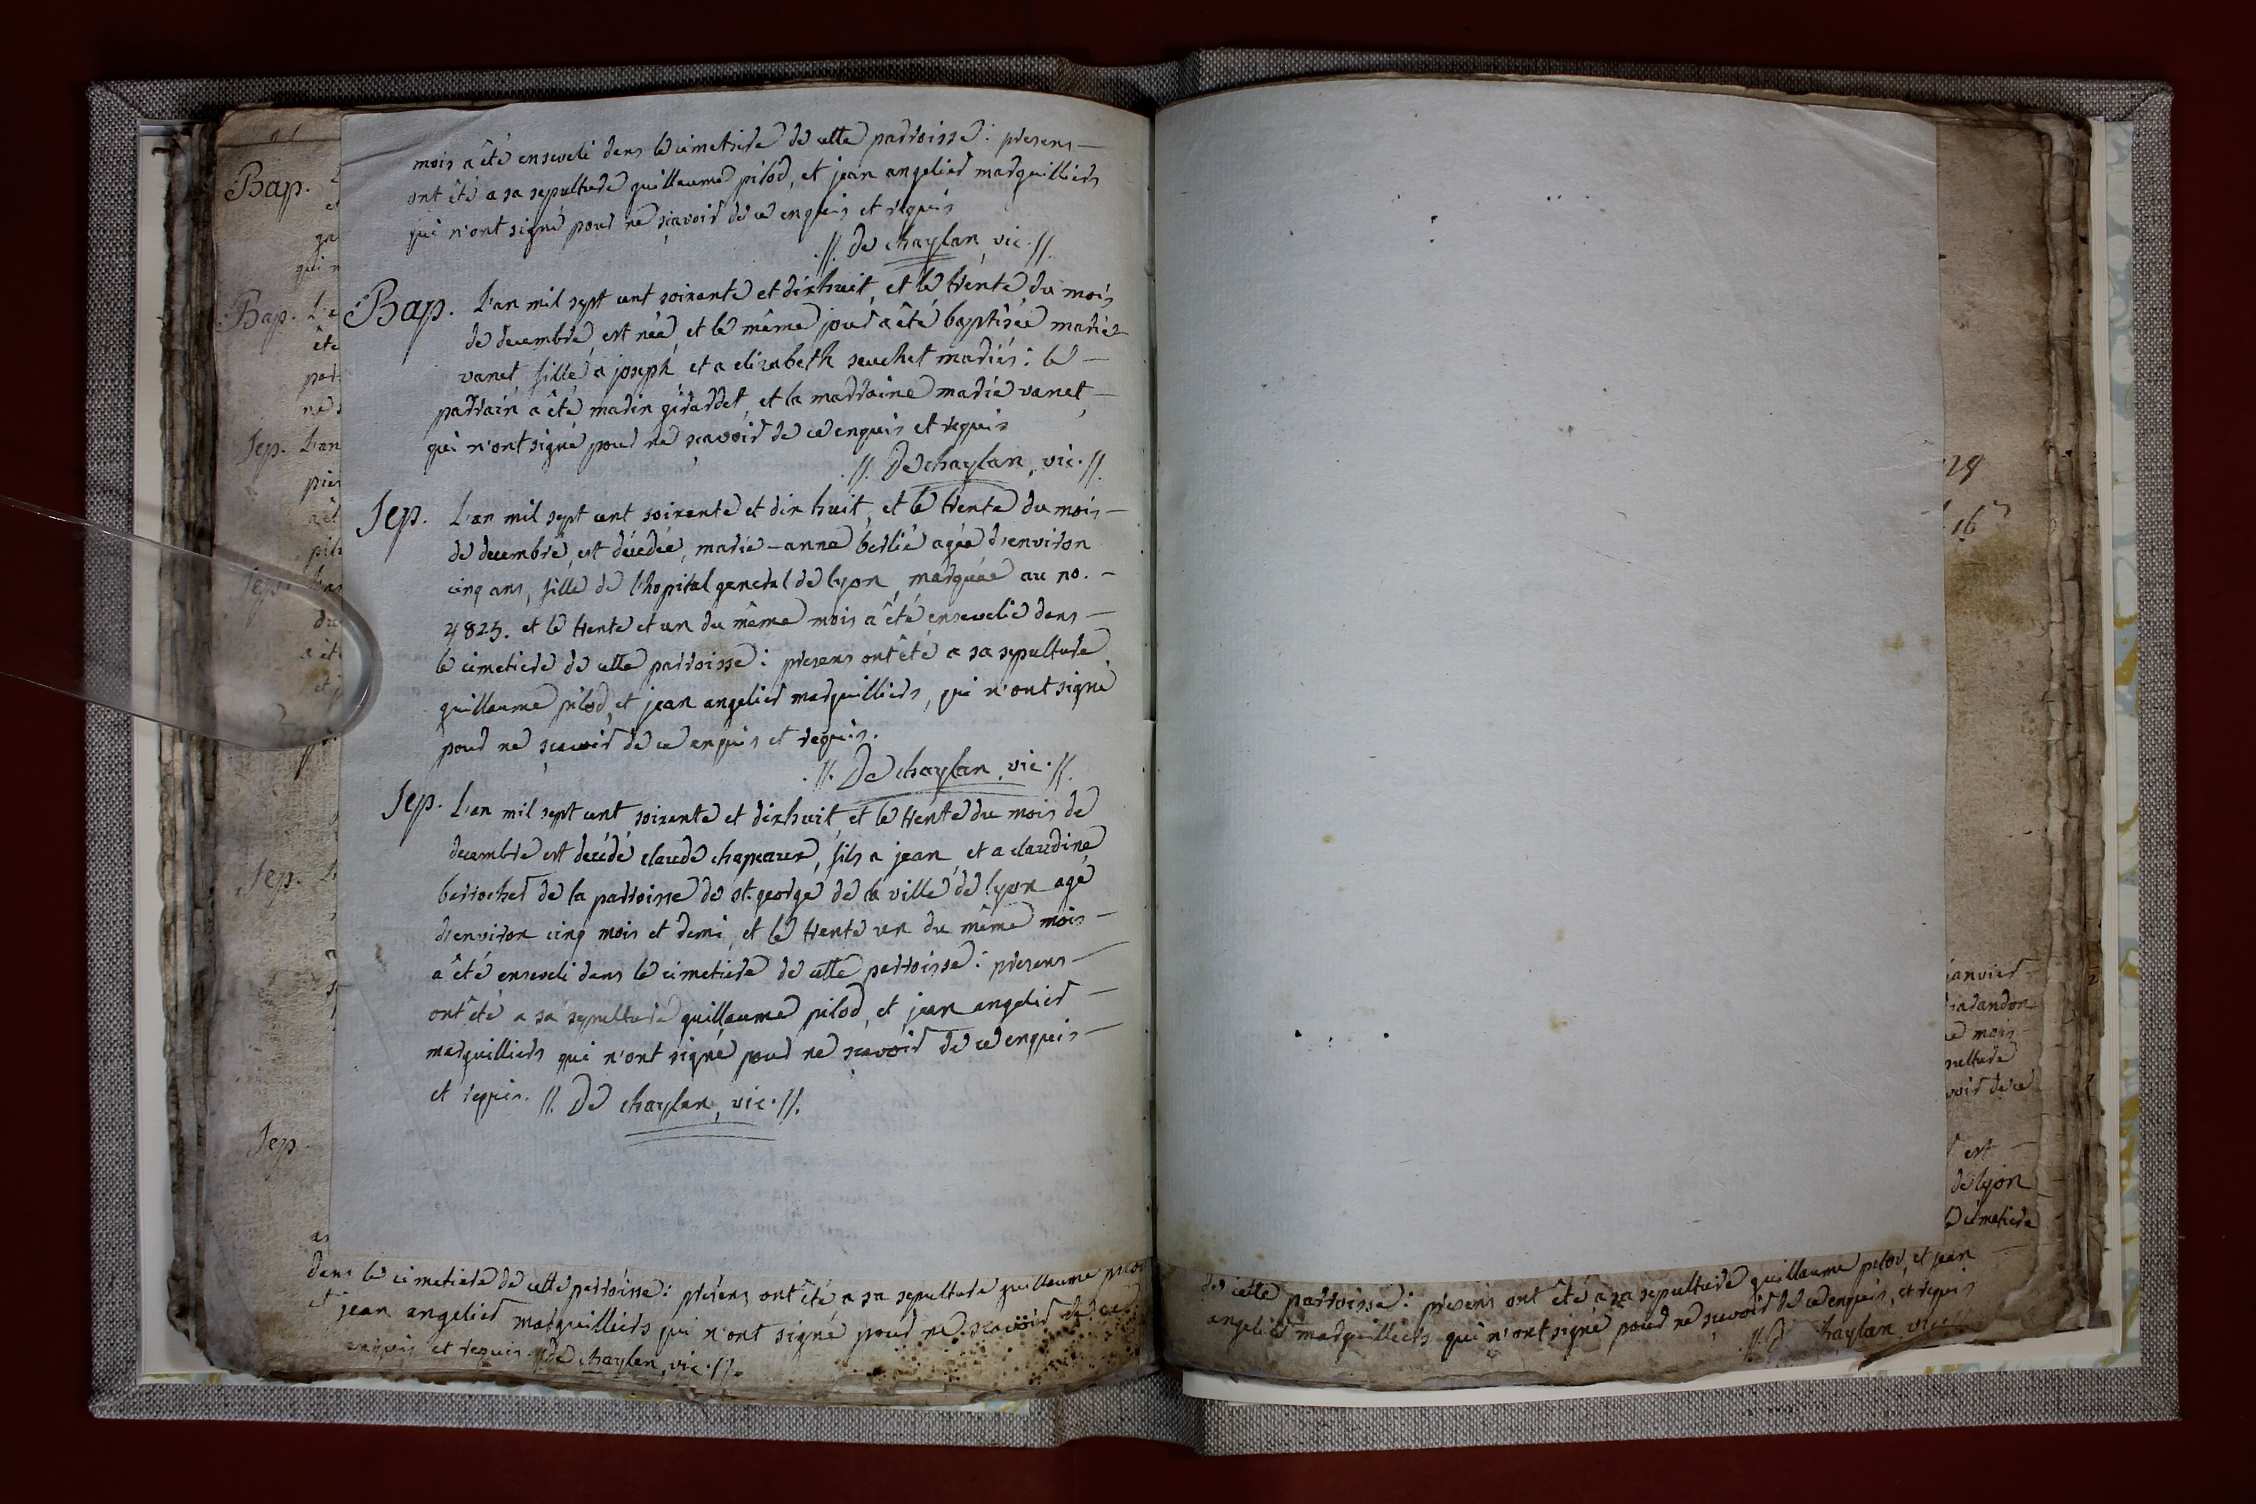 mois a été enseveli dans le cimetiere de cette parroisse : presens
ont été a sa sepulture guillaume pilod, et jean angelier marguilliers
qui n'ont signé pour ne sçavoir de ce enquis et requis
.//. De chaylan, vic. //.
Bap. L'an mil sept cent soixante et dixhuit, et le trente du mois
de decembre, est née, et le même jour a été baptisée marie
vanet fille a joseph et a elizabeth seuchet mariés : le
parrain a été marin girardet, et la marraine marie vanet,
qui n'ont signé pour ne sçavoir de ce enquis et requis
.//. De chaylan, vic. //.
Sep. L'an mil sept cent soixante et dix huit, et le trente du mois
de decembre, est décédée, marie-anne berlié agée d'environ
cinq ans, fille de l'hopital general de lyon, marquée au no.
4825. et le trente et un du même mois a été ensevelie dans
le cimetiere de cette parroisse : presens ont été a sa sepulture
guillaume pilod, et jean angelier marguilliers, qui n'ont signé
pour ne sçavoir de ce enquis et requis.
.//. De chaylan, vic. //.
Sep. L'an mil sept cent soixante et dixhuit, et le trente du mois de
decembre est decédé claude chapeaux, fils a jean, et a claudine
berrocher de la parroisse de st. george de la ville de lyon agé
d'environ cinq mois et demi, et le trente un du même mois
a été enseveli dans le cimetiere de cette parroisse : presens
ont été a sa sepulture guillaume pilod, et jean angelier
marguilliers qui n'ont signé pour ne sçavoir de ce enquis
et requis. //. De chaylan, vic. //.
dans le cimetiere de cette parroisse : présens ont été a sa sepulture guillaume pilod
et jean angelier marguilliers qui n'ont signé pour ne sçavoir de ce
enquis et requis //. De chaylan, vic. //.
Bap.
Bap.
Sep. L'an
Sep.
Sep.
Sep.
janvier
mois
est
de lyon
le cimetiere
de cette parroisse : presens ont été a sa sepulture guillaume pilod, et jean
angelier marguilliers qui n'ont signé pour ne sçavoir de ce enquis, et requis
//. De chaylan, vic